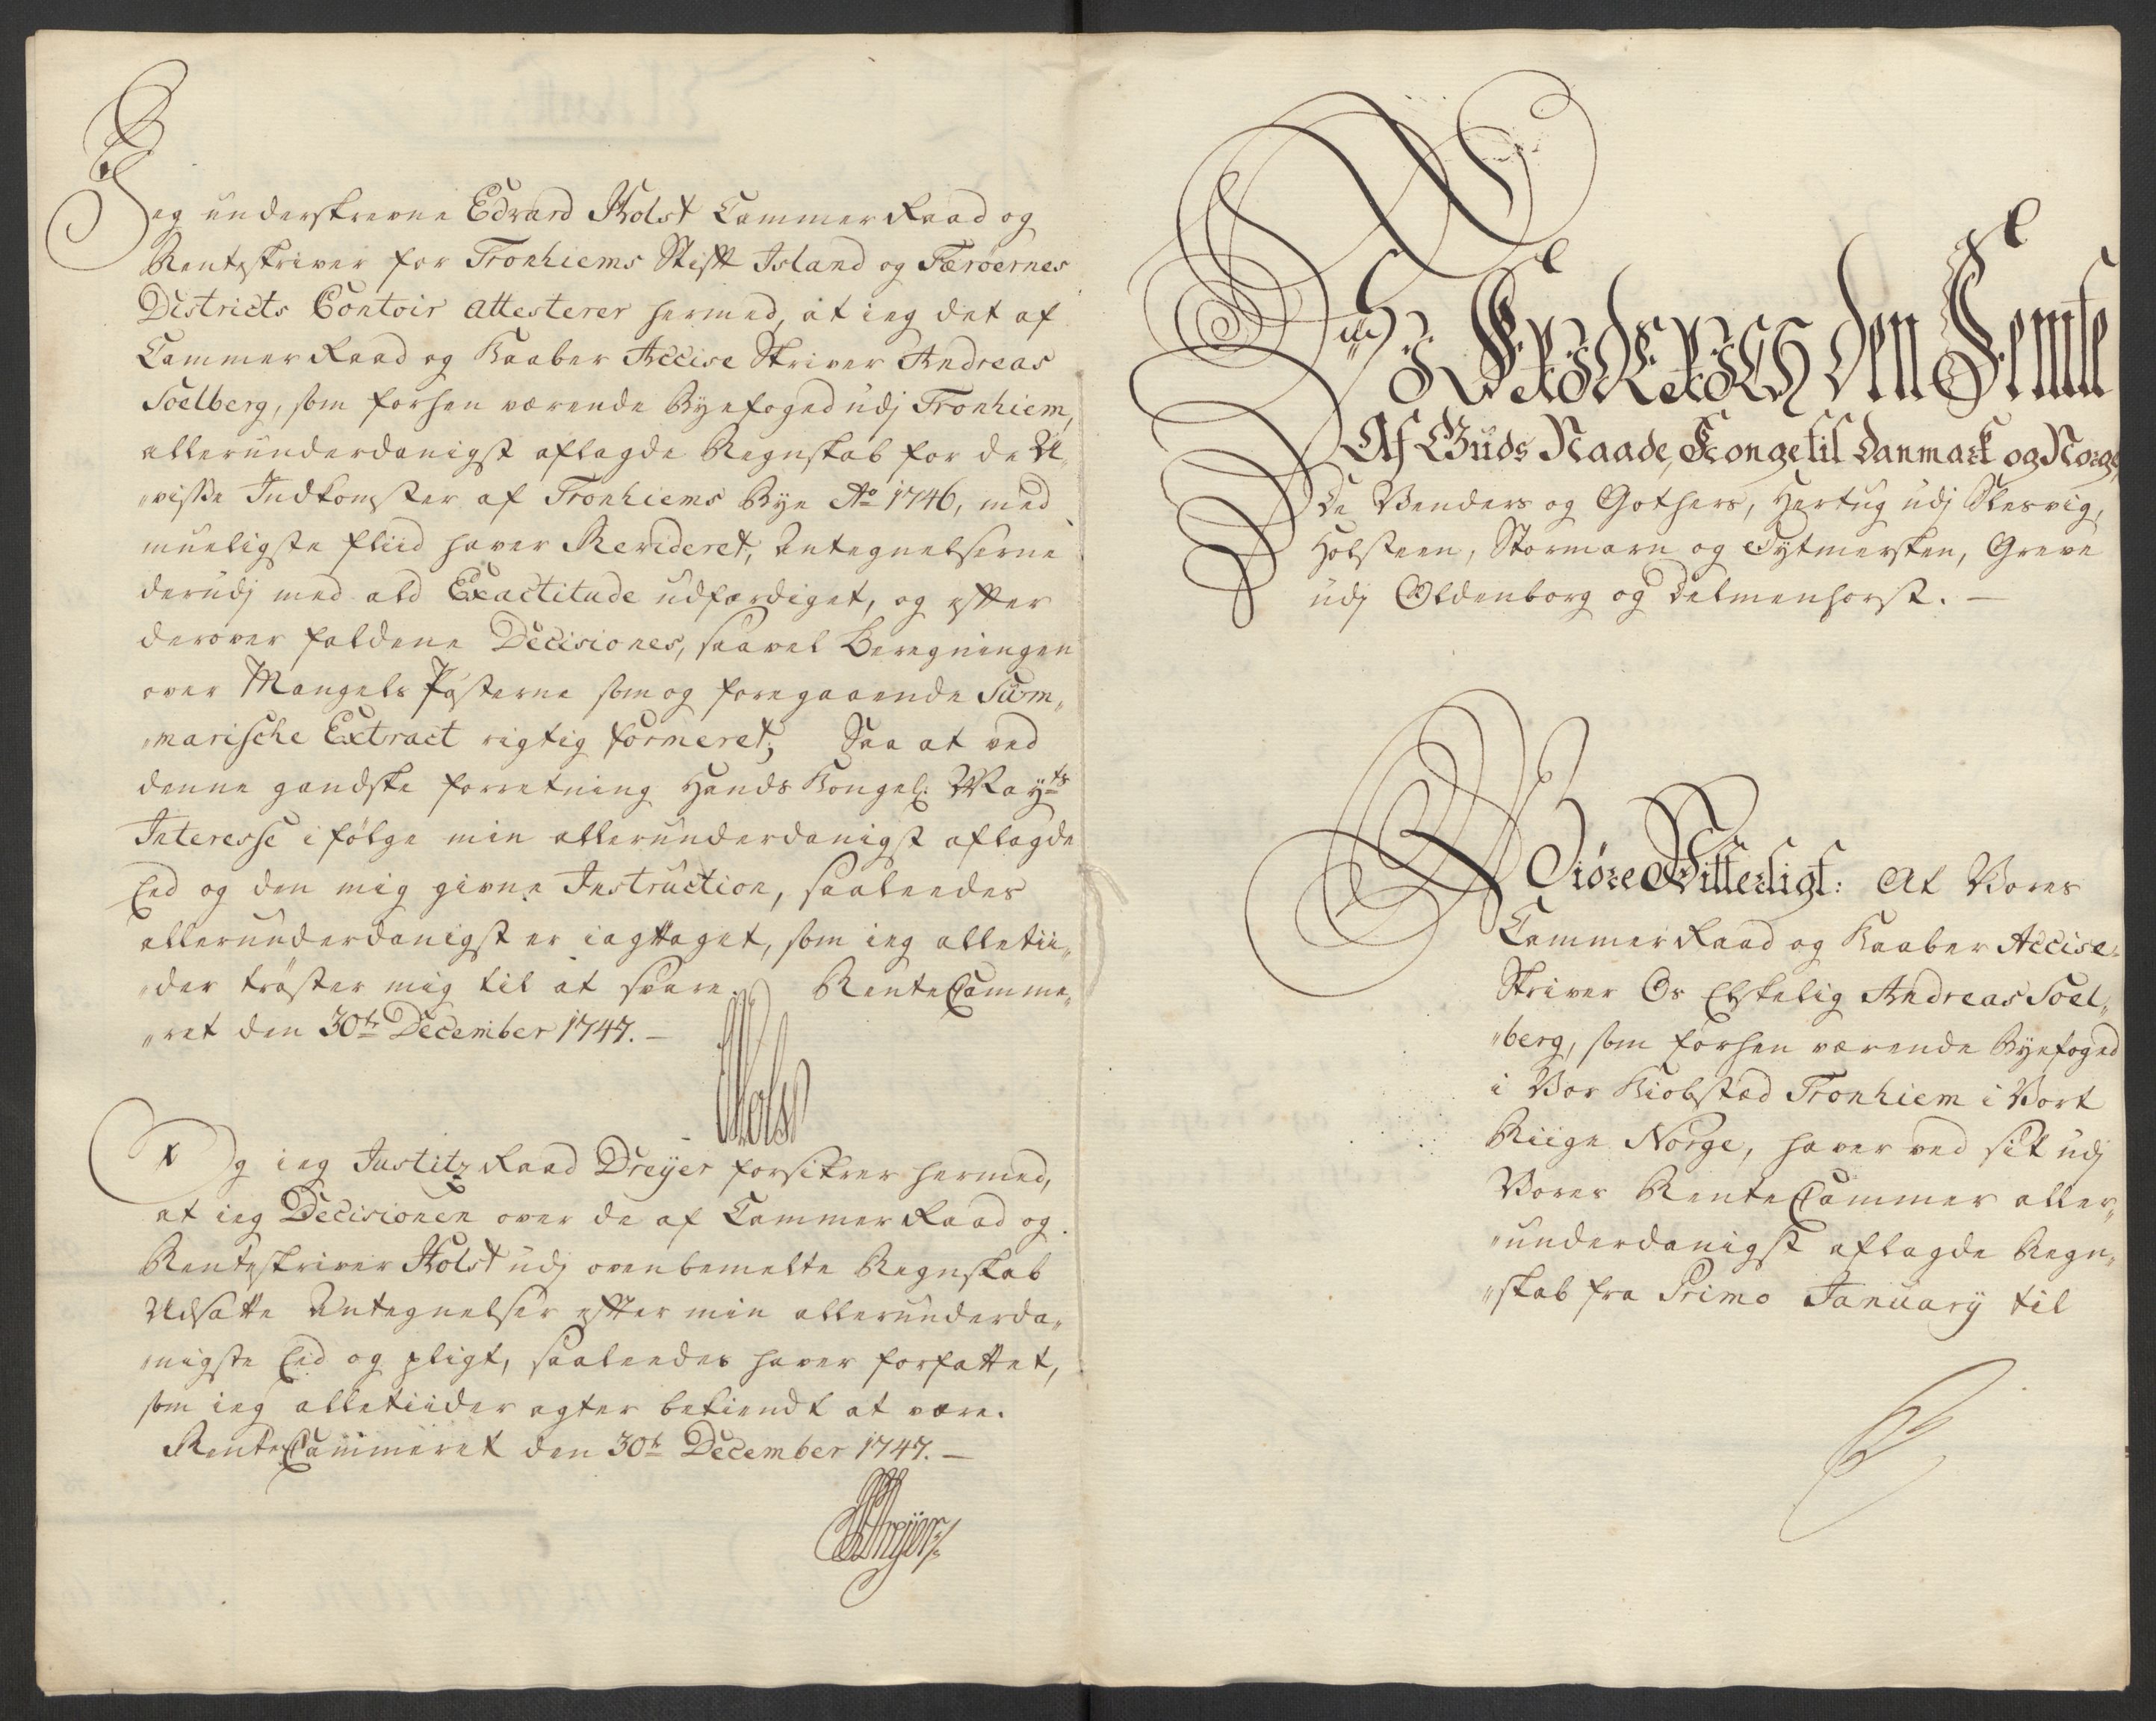 Jeg underskrevne Edvard Holst Cammer Raad og
Renteskriver for Tronhiems Stift Island og Færøernes
Districts Contoir attesterer hermed, at ieg det af
Cammer Raad og Kaaber Accise Skriver Andreas
Soelberg, som forhen værende Byefoged udj Tronhiem,
allerunderdanigst aflagde Regnskab for de U„
„visse Indkomster af Tronhiems Bye Ao 1746, med
mueligste fliid haver Revideret, Antegnelserne
derudj med ald Exactitude udfærdiget, og efter
derover faldene Decisiones, saavel Beregningen
over Mangels Posterne som og foregaaende Sum„
„marische Extract rigtig formeret; Saa at ved
denne gandske forretning Hands Kongel: Mayts
Interesse i følge min allerunderdanigst aflagde
Eed og den mig givne Instruction, saaleedes
allerunderdanigst er iagttaget, som ieg alletii„
„der trøster mig til at svare. RenteCamme„
„ret den 30te December 1747. —
EHolst
Og ieg Justitz Raad Dreyer forsikrer hermed,
at ieg Decisionen over de af Cammer Raad og
Renteskriver Holst udj ovenbemelte Regnskab
Udsatte Antegnelser efter min allerunderda„
„nigste Eed og pligt, saaleedes haver forfattet,
som ieg alletiider agter bekiendt at være.
RenteCammeret den 30te December 1747. —
Dreyer
Wii Friderich den Femte
Af Guds Naade, Konge til Danmark og Norge,
De Venders og Gothers, Hertug udj Slesvig,
Holsteen, Stormarn og Dytmersken, Greve
udj Oldenborg og Delmenhorst. —
Giøre Witterligt: At Vores
Cammer Raad og Kaaber Accise„
Skriver Os Elskelig Andreas Soel„
„berg, som forhen værende Byefoged
i Vor Kiøbstæd Tronhiem i Vort
Riige Norge, haver ved sit udj
Vores RenteCammer aller„
„underdanigst aflagde Regn„
„skab fra Primo January til